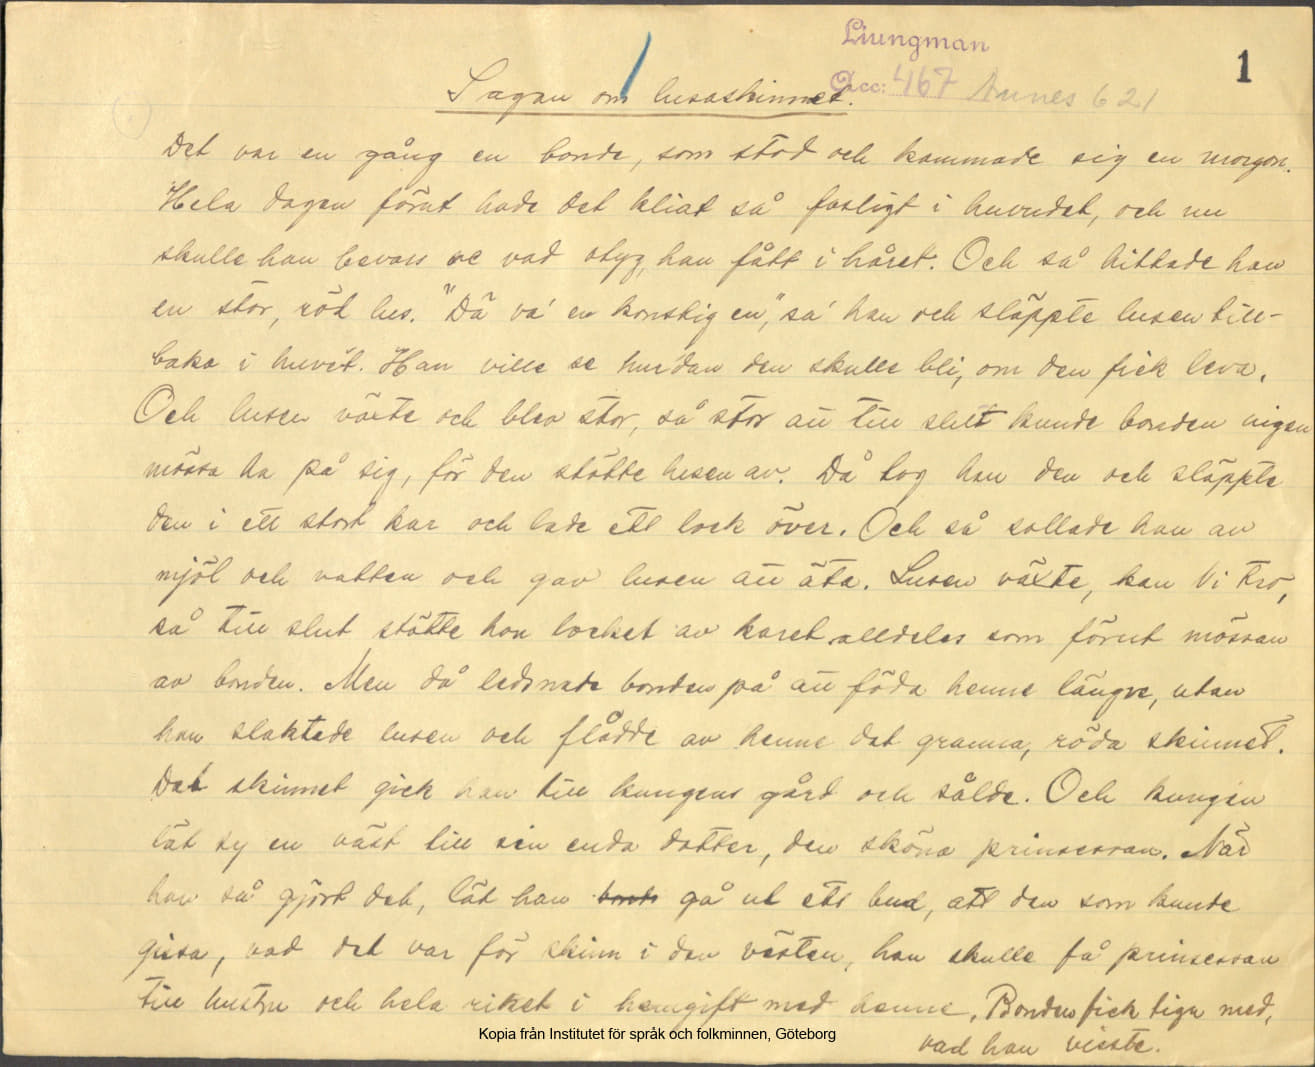 Ljungman
1
Acc: 467 Annes 621
Sagan om lusaskinnet.
Det var en gång en bonde, som stod och kammade sig en morgon.
Hela dagen förut hade det kliat så fasligt i huvudet, och nu
skulle han bevars se vad otyg, han fått i håret. Och så hittade han
en stor, röd lus. "Dä va' en konstig en", sa' han och släppte lusen till-
baka i huvet. Han ville se hur'dan den skulle bli, om den fick leva.
Och lusen växte och blev stor, så stor att till slut kunde bonden ingen
mössa ha på sig, för den stötte lusen av. Då tog han den och släppte
den i ett stort kar och lade ett lock över. Och så sollade han av
mjöl och vatten och gav lusen att äta. Lusen växte, kan Vi tro,
så till slut stötte hon locket av karet alldeles som förut mössan
av bonden. Men då ledsnade bonden på att föda henne längre, utan
han slaktade lusen och flådde av henne det granna, röda skinnet.
Det skinnet gick han till kungens gård och sålde. Och kungen
lät sy en väst till sin enda dotter, den sköna prinsessan. När
han så gjort det, lät han gå ut ett bud, att den som kunde
gissa, vad det var för skinn i den västen, han skulle få prinsessan
till hustru och hela riket i hemgift med henne. Bonden fick tiga med,
vad han visste.
Kopia från Institutet för språk och folkminnen, Göteborg